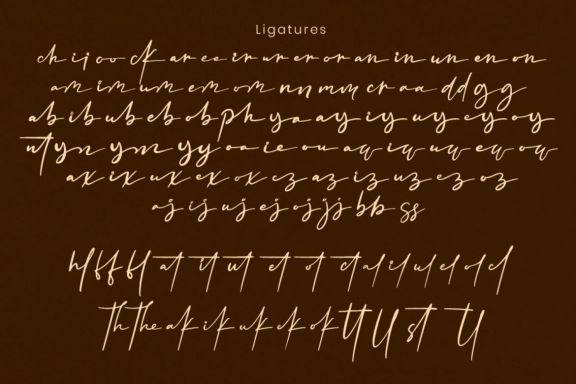 Ligatures
ch ij oo ck ar ee ir ur er or an in un en on
am im um em om nn mm cr aa dd gg
ab ib ub eb ob ph ya ay iy uy ey oy
ut yn ym yy oa ie ou aq iq uq eq oq
ax ix ux ex ox cz az iz uz ez oz
aj ij uj ej oj jj bb ss
ff fl at it ut et ot ct al il ul el ol cl
th the ak ik uk ck ok tt ll st